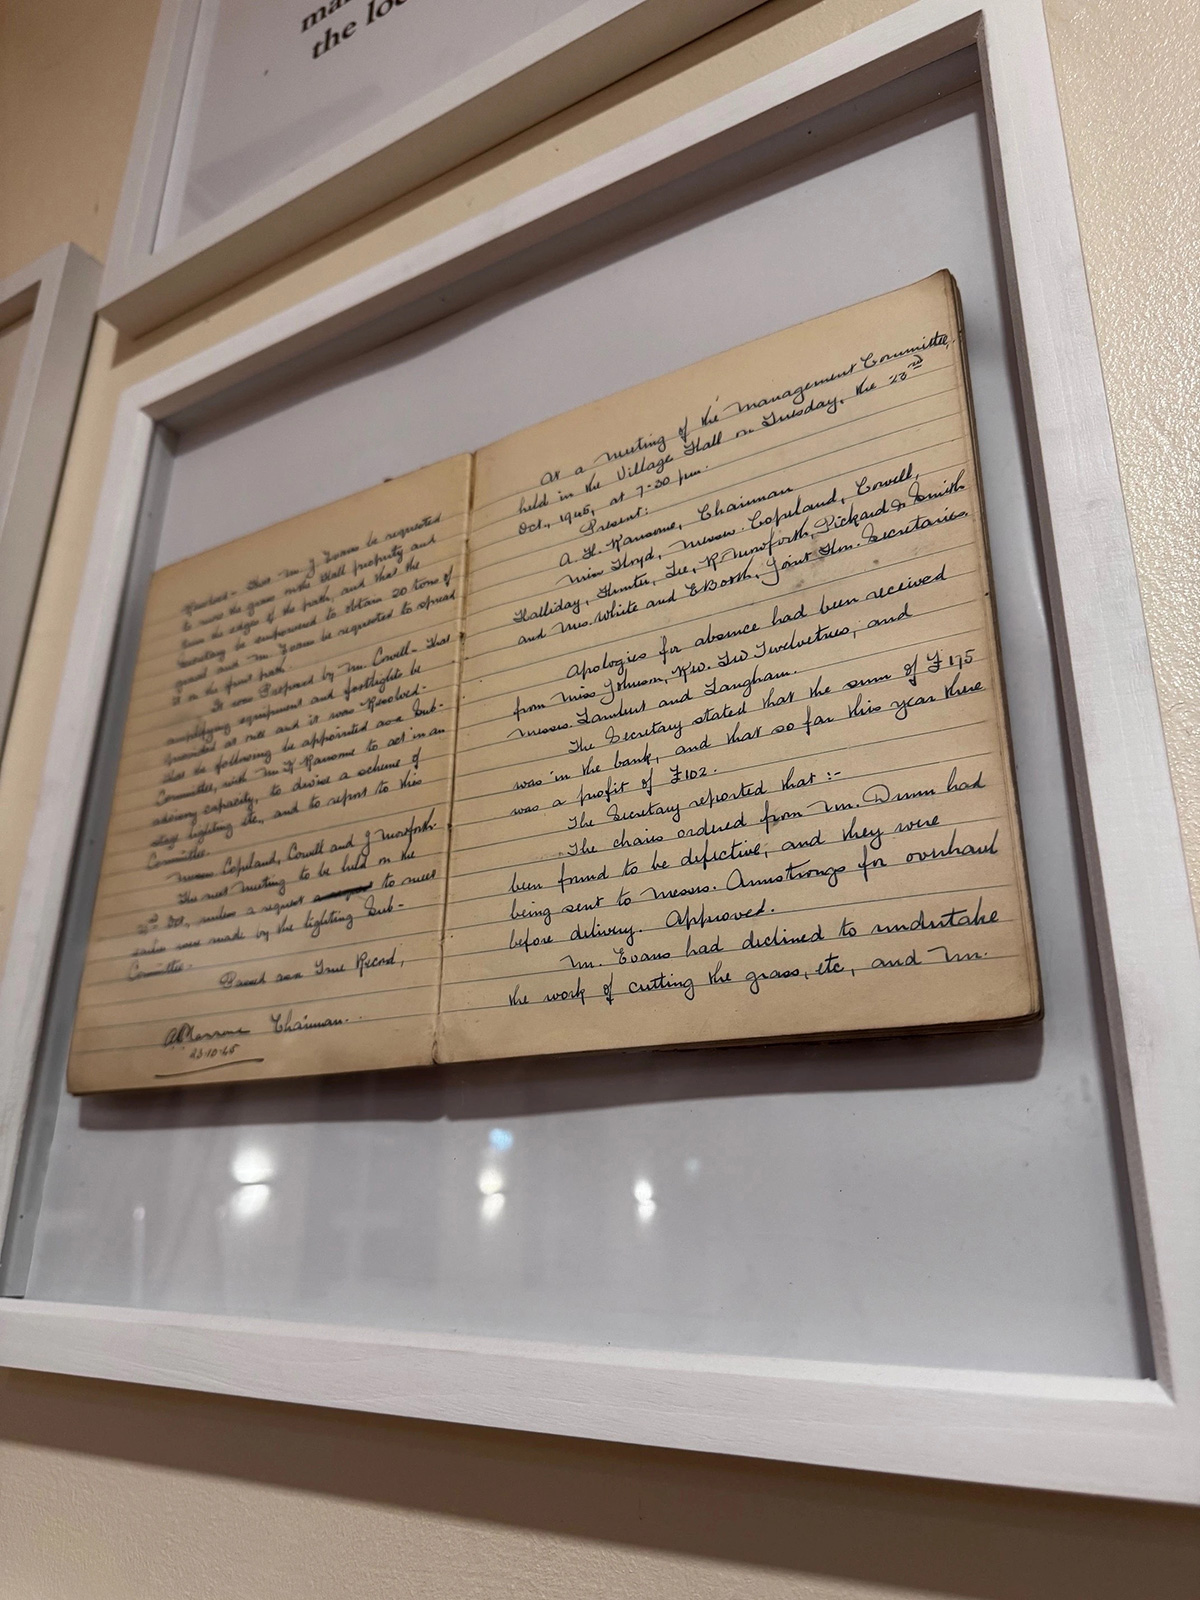 the
Resolved - That Mr. J. be requested
to mow the grass on the Hall property and
trim the edges of the path, and that the
Secretary be empowered to obtain 20 tons of
gravel and Mr. be requested to spread
it on the front path.
It was Proposed by Mr. Cowell - That
amplifying equipment and footlights be
provided at once and it was Resolved -
that the following be appointed as a Sub-
Committee, with Mr. Ransome to act in an
advisory capacity, to devise a scheme of
stage lighting etc., and to report to this
Committee.
Messrs. Copeland, Cowell and J Mowforth.
The next meeting to be held on the
Oct, unless a request to meet
earlier were made by the lighting Sub-
Committee.
Passed as a True Record,
Chairman.
23-10-45
At a meeting of the Management Committee,
held in the Village Hall on Tuesday, the 23rd
Oct., 1945, at 7-30 pm.
Present:
A. H. Ransome, Chairman
Miss Floyd, Messrs. Copeland, Cowell,
Halliday, Hunter, Lee, R Mowforth, Pickard & Smith
and Mrs. White and E Booth, Joint Hon. Secretaries.
Apologies for absence had been received
from Miss Johnson, Rev. Twelvetrees, and
Messrs. Lambert and Langham.
The Secretary stated that the sum of £175
was in the bank, and that so far this year there
was a profit of £102.
The Secretary reported that :-
The chairs ordered from Mr. Dunn had
been found to be defective, and they were
being sent to Messrs. Armstrongs for overhaul
before delivery. Approved.
Mr. Evans had declined to undertake
the work of cutting the grass, etc, and Mr.